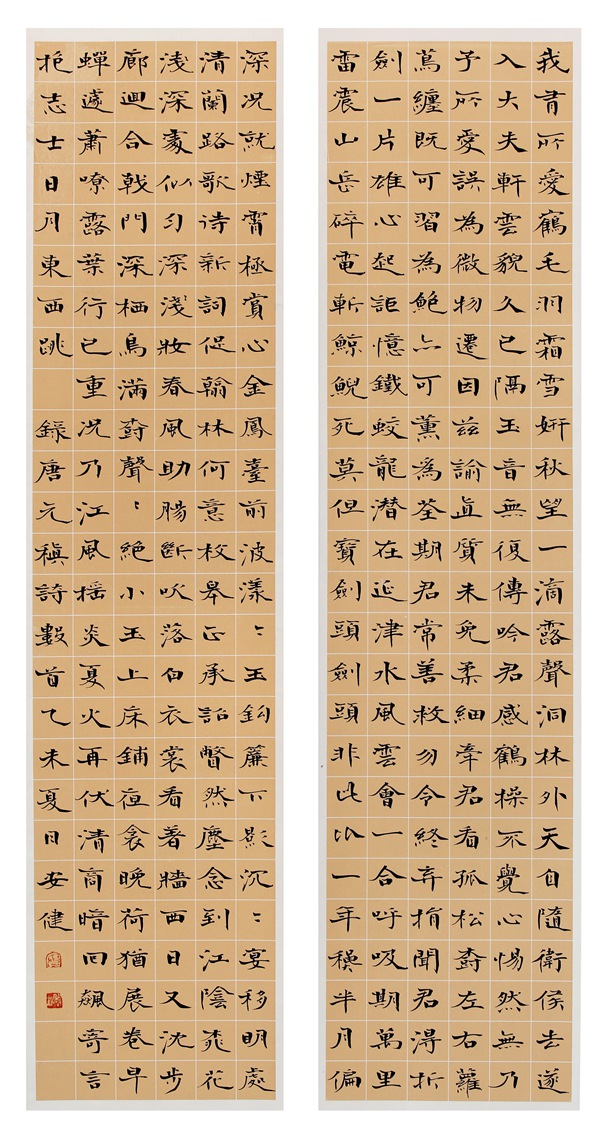 我有所愛鶴毛羽霜雪妍秋望一滴露聲洞林外天自隨衛侯去遂
入大夫軒雲貌久已隔玉音無復傳吟君感鶴操不覺心惕然無乃
予所愛誤為微物遷因茲諭直質未免柔細牽君看孤松樹左右蘿
蔦纏既可習為鮑亦可薰為荃期君常善救勿令終弃捐聞君得折
劍一片雄心起詎憶鐵蛟龍潛在延津水風雲會一合呼吸期萬里
雷震山岳碎電斬鯨鯢死莫但寶劍頭劍頭非此比一年穐半月偏
深況就煙霄極賞心金鳳臺前波漾〻玉鈎簾下影沉〻宴移明處
清蘭路歌詩新詞促翰林何意枚皋正承詔瞥然塵念到江陰桃花
淺深處似勻深淺妝春風助腸斷吹落白衣裳看著牆西日又沈步
廊迴合戟門深栖鳥滿樹聲〻絕小玉上床鋪夜衾晚荷猶展卷早
蟬遽蕭嘹露葉行已重況乃江風搖炎夏火再伏清商暗回飆寄言
抱志士日月東西跳 錄唐元稹詩數首乙未夏日安健